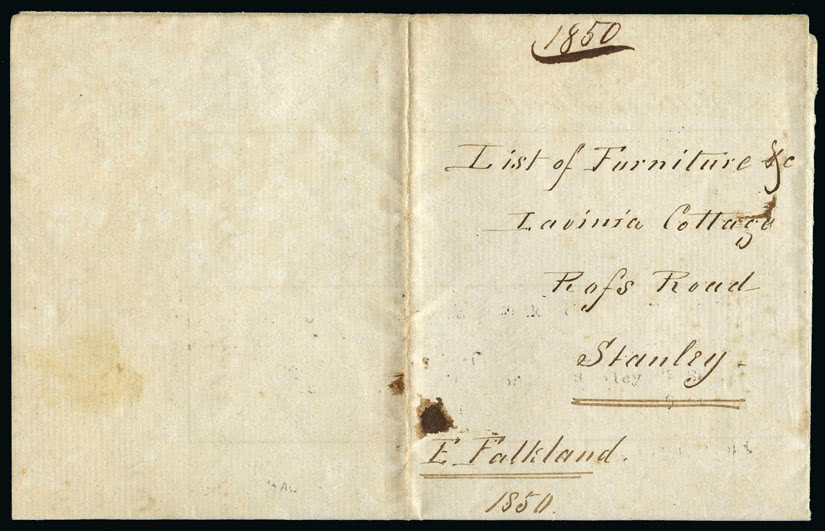 1850
List of Furniture &c
Lavinia Cottage
Roſs Road
Stanley
E Falkland.
1850.